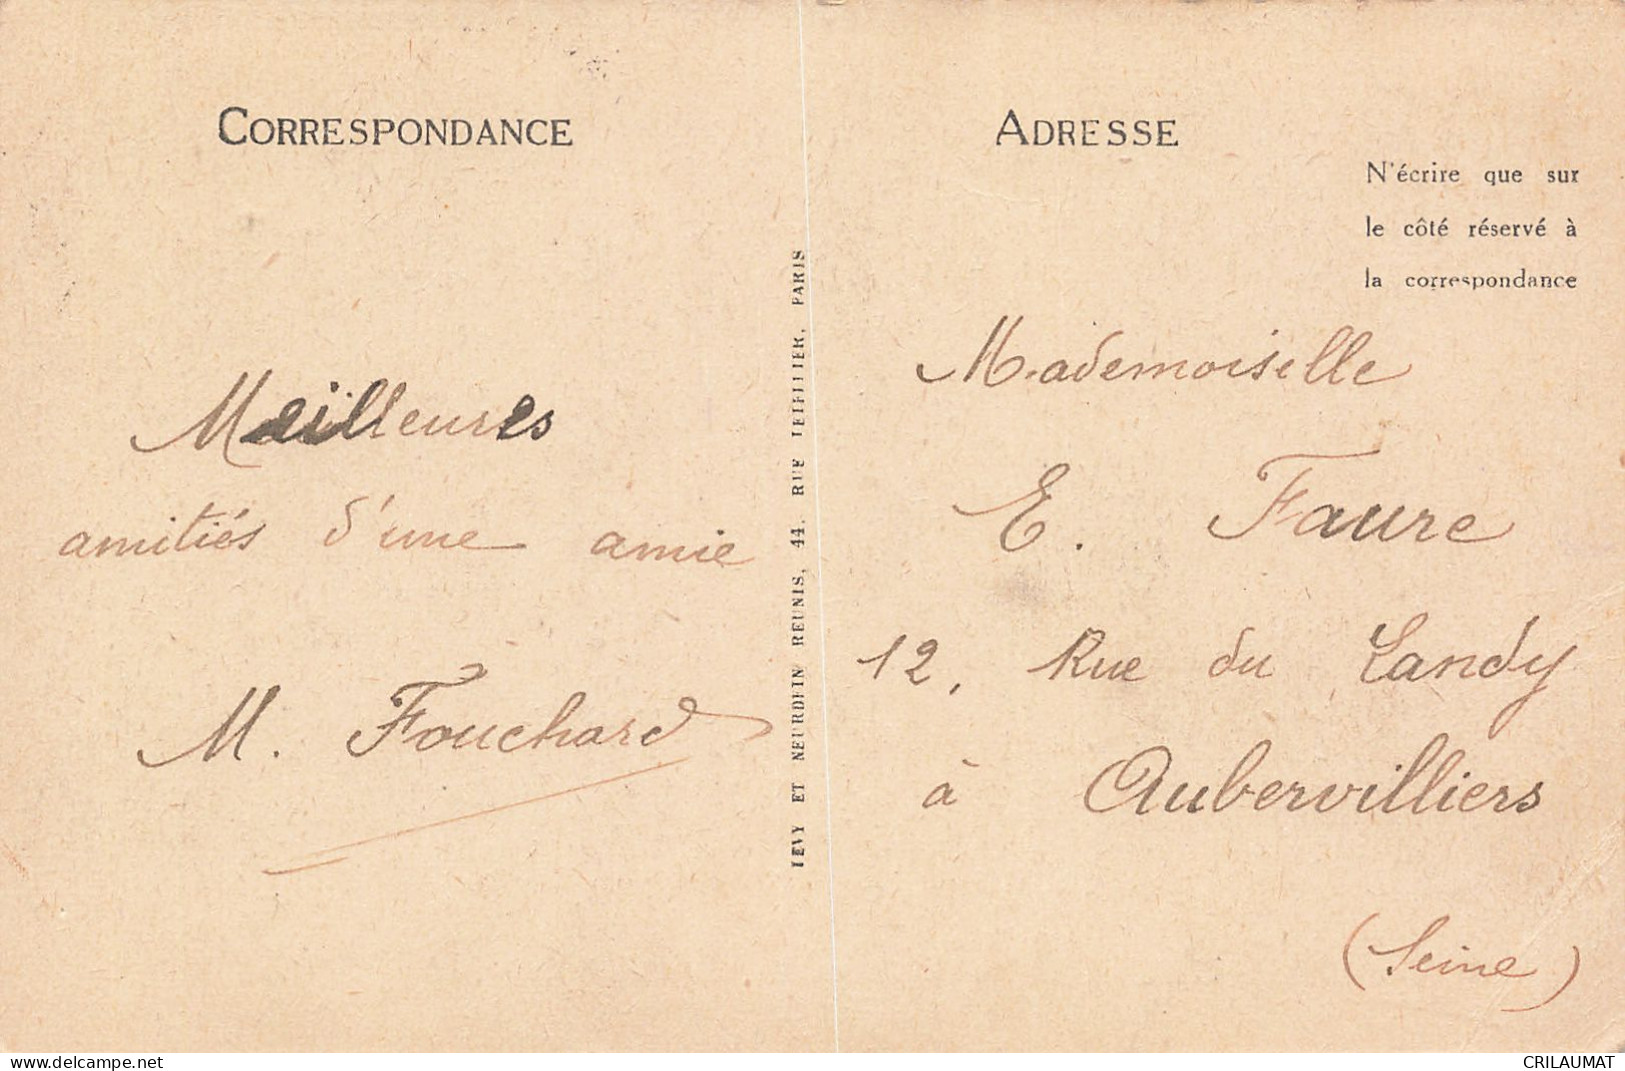 CORRESPONDANCE
Meilleures
amitiés d'une amie
M. Fouchard
LEVY ET NEURDEIN REUNIS, 44, RUE LETELLIER, PARIS
ADRESSE
N'écrire que sur
le côté réservé à
la correspondance
Mademoiselle
E. Faure
12, Rue du Landy
à Aubervilliers
(Seine)
www.delcampe.net
CRILAUMAT